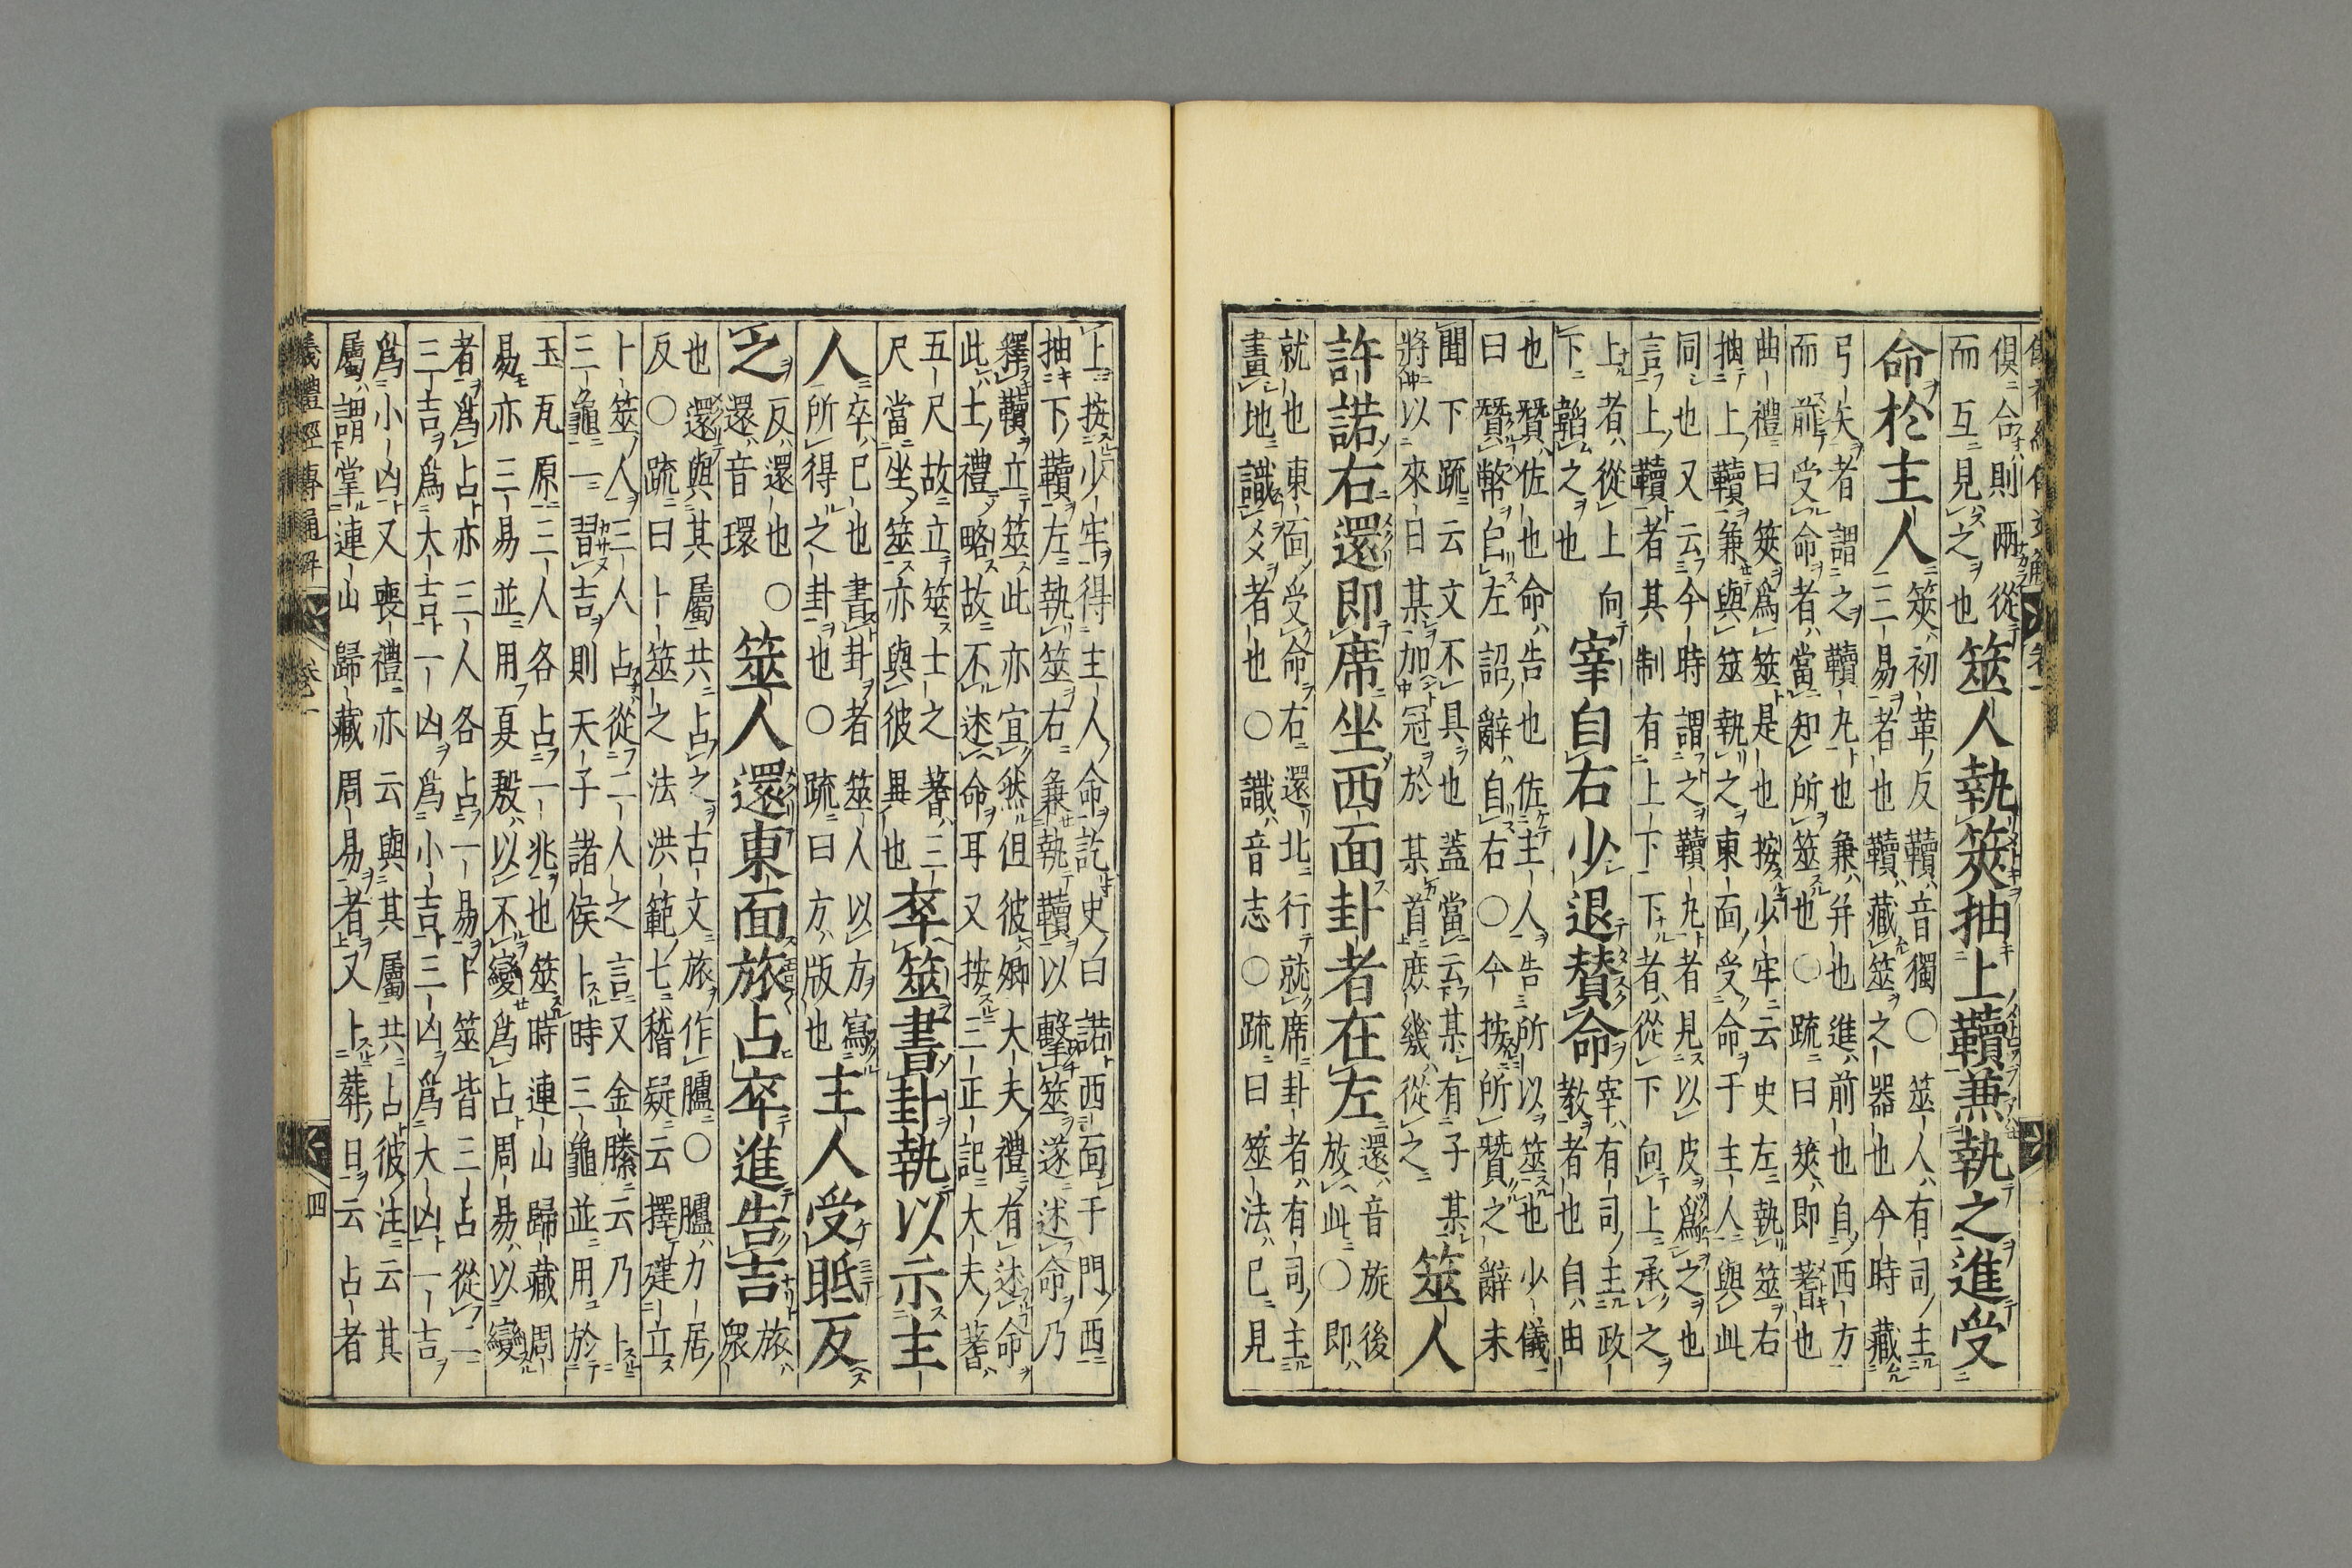 儀禮經傳通解 卷一
俱合則兩從
而互見之也
筮人執筴抽上韇兼執之進受
命於主人
筴初革反韇音獨○筮人有司主
三易者也韇藏筮之器也今時藏
弓矢者謂之韇丸也兼幷也進前也自西方
而前受命者當知所筮也○疏曰筴即蓍也
曲禮曰筴爲筮是也按少牢云史左執筮右
抽上韇兼與筮執之東面受命于主人與此
同也又云今時謂之韇丸者見以皮爲之也
言上韇者其制有上下下者從下向上承之
上者從上向
下韜之也
宰自右少退贊命
宰有司主政
教者也自由
也贊佐也命告也佐主人告所以筮也少儀
曰贊幣自左詔辭自右○今按所贊之辭未
聞下疏云文不具也蓋當云某有子某
將以來日某加冠於某首庶幾從之
筮人
許諾右還即席坐西面卦者在左
還音旋後
放此○即
就也東面受命右還北行就席卦者有司主
畫地識爻者也○識音志○疏曰筮法已見
上按少牢得主人命訖史曰諾西面于門西
抽下韇左執筮右兼執韇以擊筮遂述命乃
釋韇立筮此亦宜然但彼卿大夫禮有述命
此士禮略故不述命耳又按三正記大夫蓍
五尺故立筮士之蓍三
尺當坐筮亦與彼異也
卒筮書卦執以示主
人
卒已也書卦者筮人以方寫
所得之卦也○疏曰方版也
主人受眡反
之
反還也○
還音環
筮人還東面旅占卒進告吉
旅
衆
也還與其屬共占之古文旅作臚○臚力居
反○疏曰卜筮之法洪範七稽疑云擇建立
卜筮人三人占從二人之言又金縢云乃卜
三龜一習吉則天子諸侯卜時三龜並用於
玉瓦原三人各占一兆也筮時連山歸藏周
易亦三易並用夏殷以不變爲占周易以變
者爲占亦三人各占一易卜筮皆三占從二
三吉爲大吉一凶爲小吉三凶爲大凶一吉
爲小凶又喪禮亦云與其屬共占彼注云其
屬謂掌連山歸藏周易者又卜葬日云占者
儀禮經傳通解 卷一 四